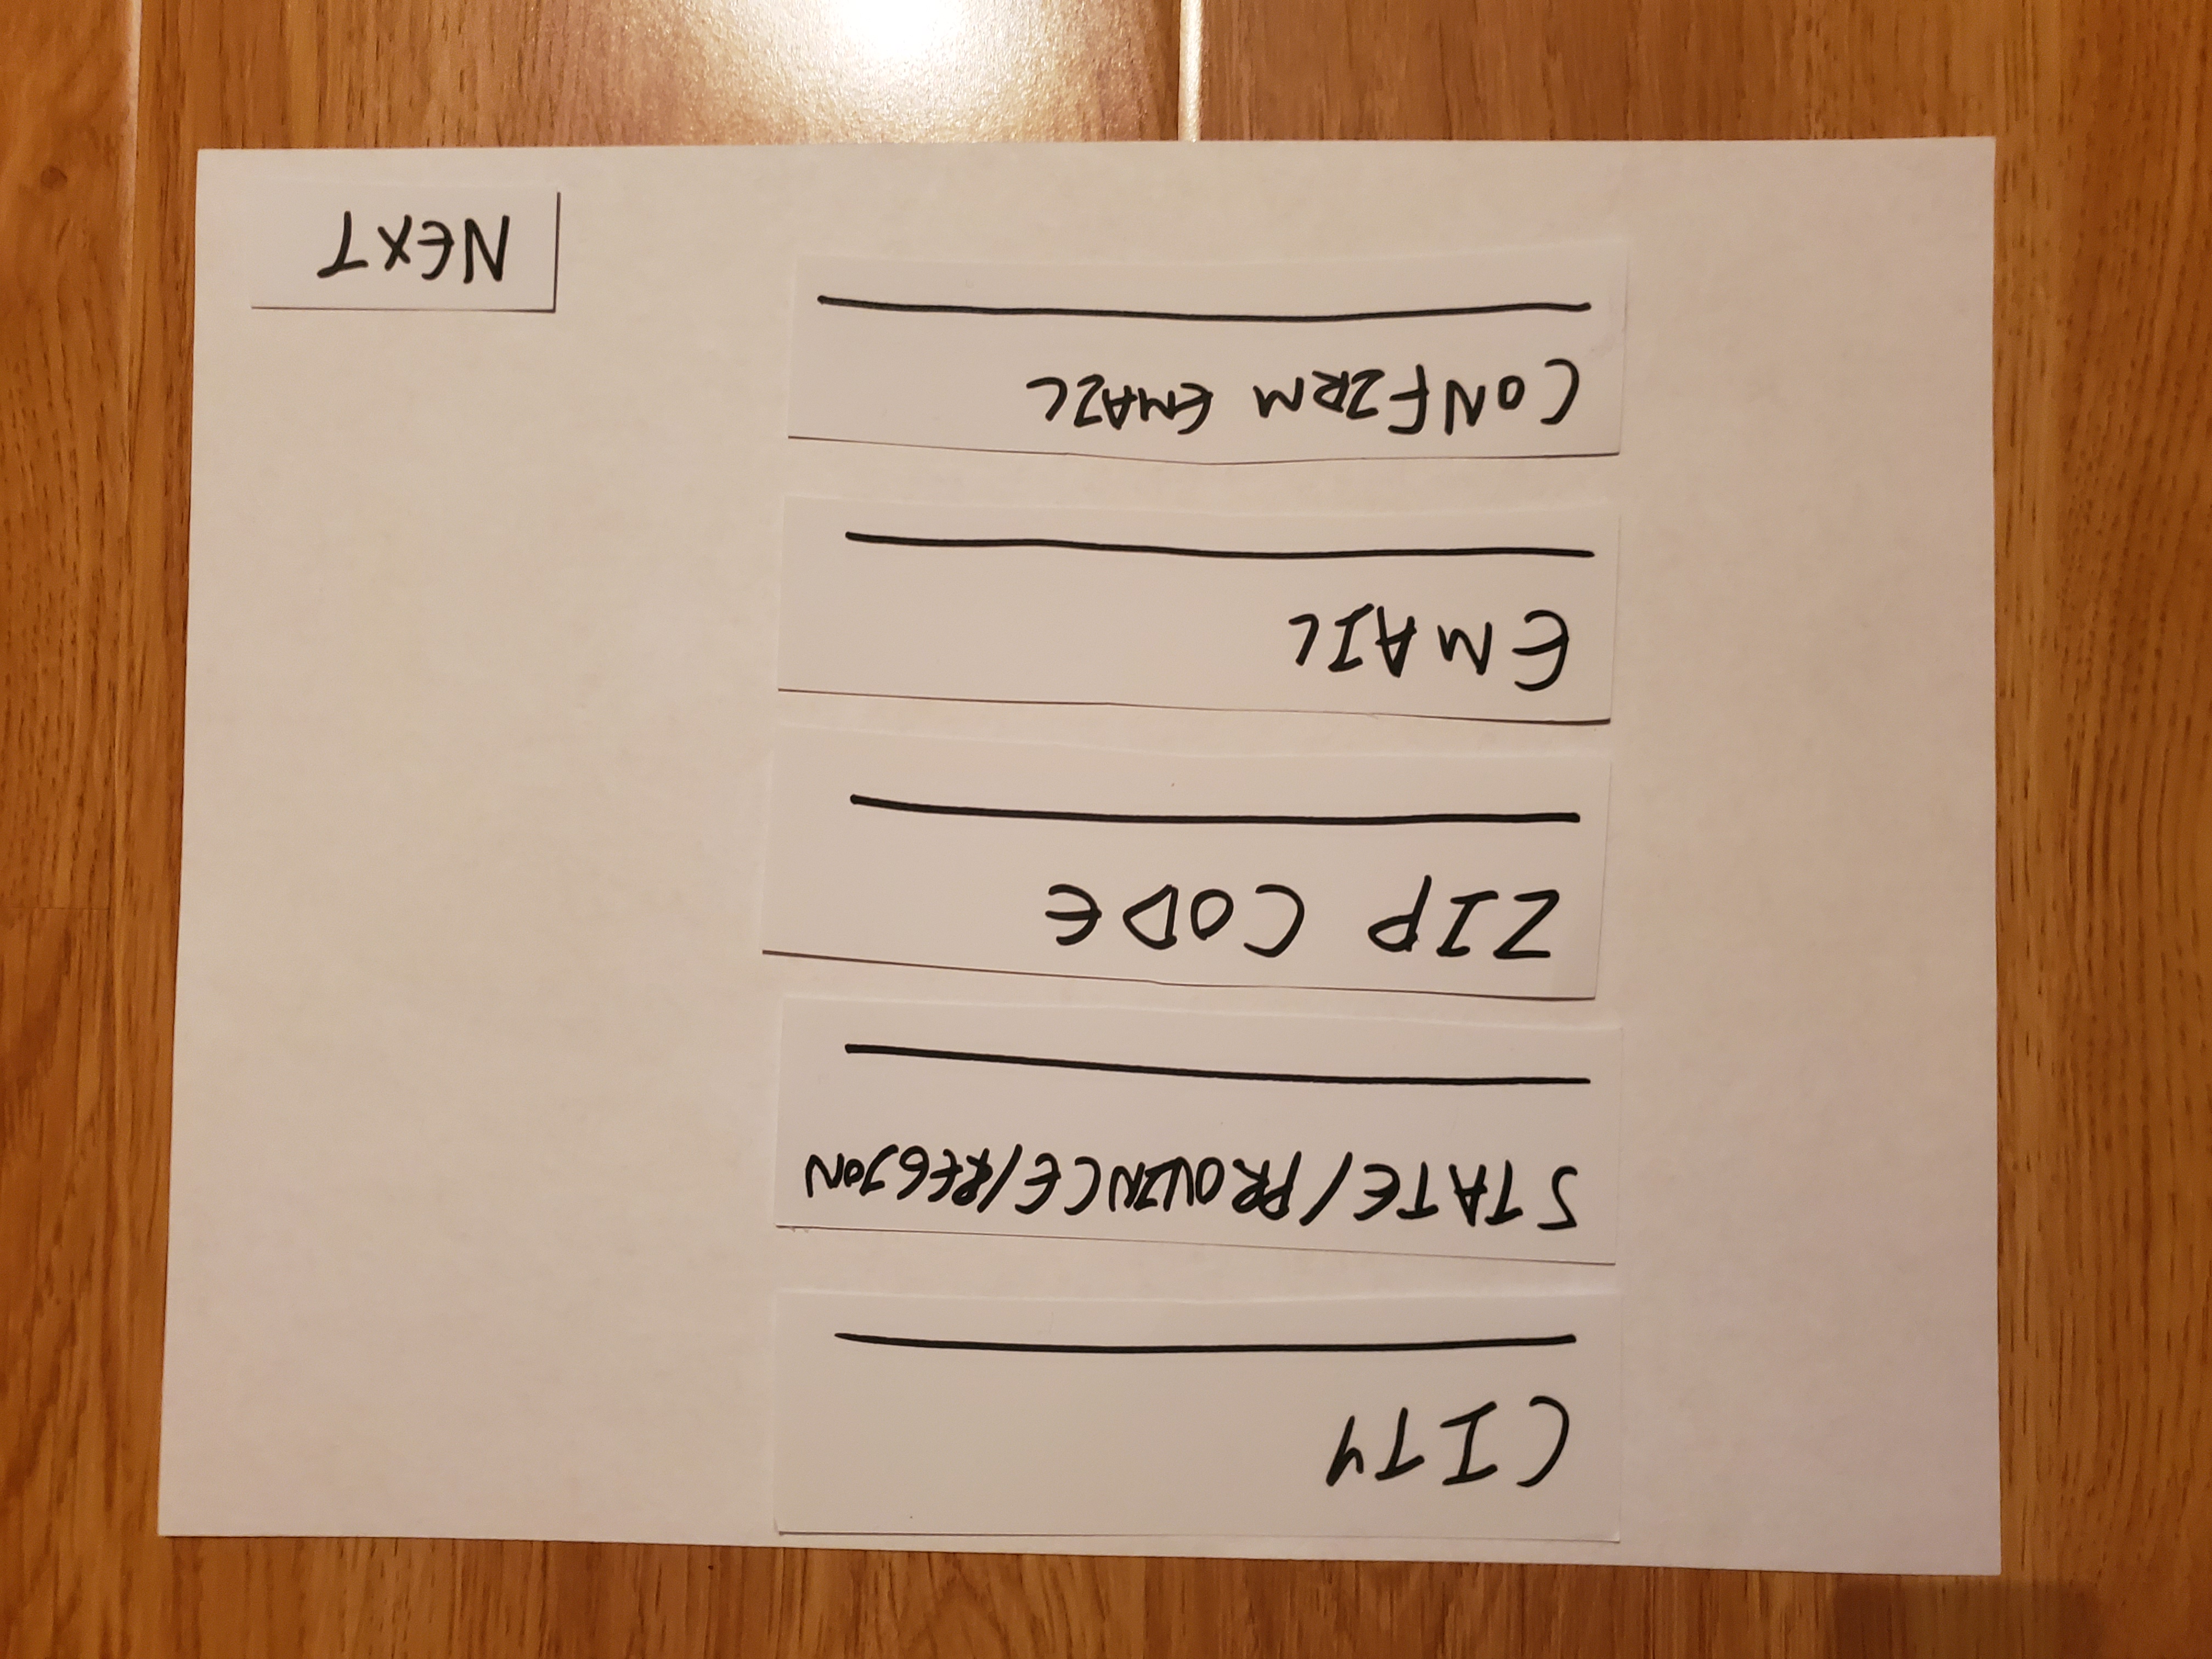 CITY
STATE/PROVINCE/REGION
ZIP CODE
EMAIL
CONFIRM EMAIL
NEXT